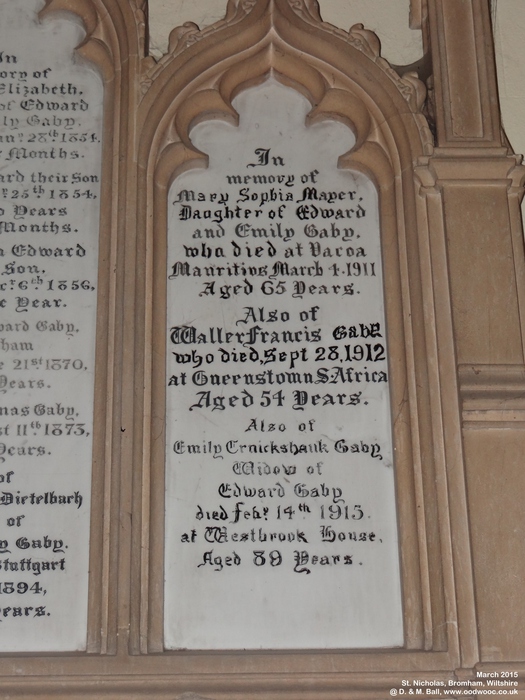 In
ory of
Elizabeth.
of Edward
ly Gaby.
an: 28th 1854.
Months.
ard their Son
25th 1854,
Years
Months.
Edward
Son.
6th 1856,
e Year.
ward Gaby.
ham
e 21st 1870,
Years.
mas Gaby,
st 11th 1873,
ears.
of
Dietelbach
of
y Gaby.
Stuttgart
1894,
ears.
In
memory of
Mary Sophia Mayer,
Daughter of Edward
and Emily Gaby,
who died at Vacoa
Mauritius March 4.1911
Aged 65 Years.
Also of
Walter Francis Gaby
who died, Sept 28, 1912
at Queenstown S.Africa
Aged 54 Years.
Also of
Emily Cruickshank Gaby
Widow of
Edward Gaby
died Feby 14th 1915.
at Westbrook House,
Aged 89 Years.
March 2015
St. Nicholas, Bromham, Wiltshire
@ D. & M. Ball, www.oodwooc.co.uk